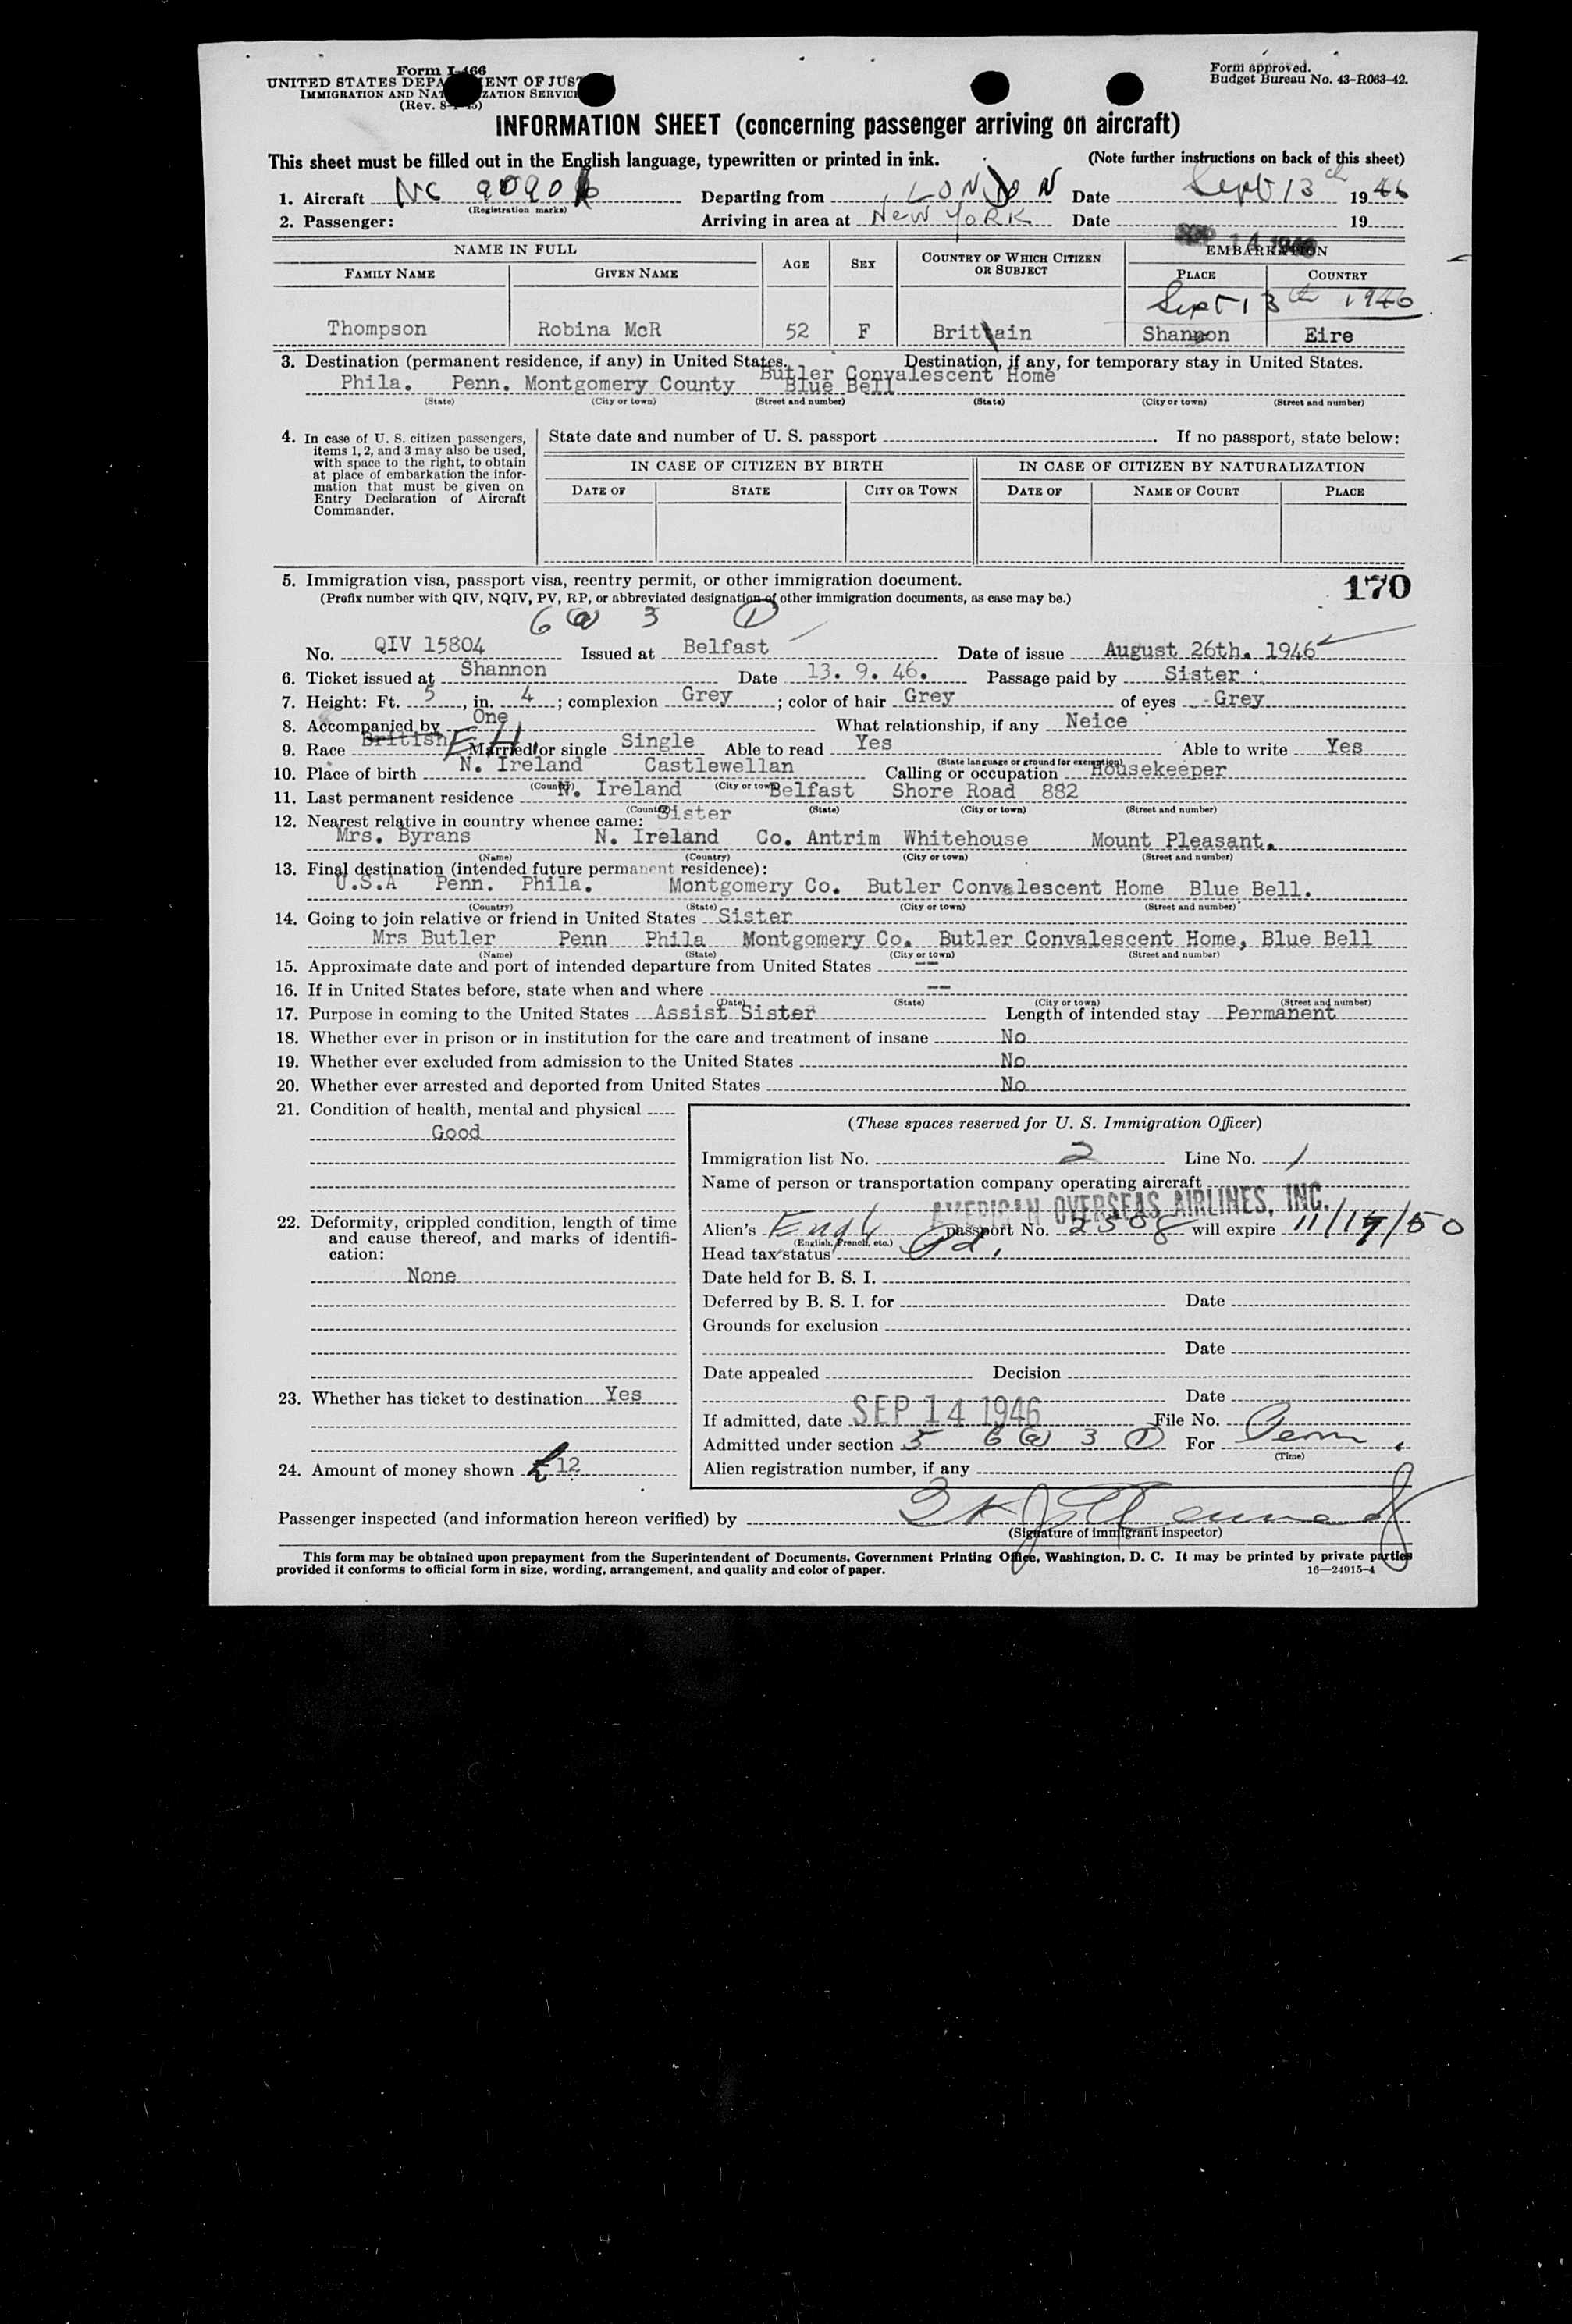 Form I-466
UNITED STATES DEPA ENT OF JUS
IMMIGRATION AND NAT ZATION SERVICE
(Rev. 8- )
Form approved.
Budget Bureau No. 43-R063-42.
INFORMATION SHEET (concerning passenger arriving on aircraft)
This sheet must be filled out in the English language, typewritten or printed in ink. (Note further instructions on back of this sheet)
1. Aircraft NC 9090 Departing from LONDON Date Sept 13th 1946
(Registration marks)
2. Passenger: Arriving in area at New YORK Date 19
SEP 14 1946
NAME IN FULL AGE SEX COUNTRY OF WHICH CITIZEN OR SUBJECT EMBARKATION
FAMILY NAME GIVEN NAME PLACE COUNTRY
Sept 13th 1946
Thompson Robina McR 52 F Brittain Shannon Eire
3. Destination (permanent residence, if any) in United States. Destination, if any, for temporary stay in United States.
Phila. Penn. Montgomery County Butler Convalescent Home
Blue Bell
(State) (City or town) (Street and number) (State) (City or town) (Street and number)
4. In case of U. S. citizen passengers, items 1, 2, and 3 may also be used, with space to the right, to obtain at place of embarkation the information that must be given on Entry Declaration of Aircraft Commander.
State date and number of U. S. passport . If no passport, state below:
IN CASE OF CITIZEN BY BIRTH IN CASE OF CITIZEN BY NATURALIZATION
DATE OF STATE CITY OR TOWN DATE OF NAME OF COURT PLACE
5. Immigration visa, passport visa, reentry permit, or other immigration document. 170
(Prefix number with QIV, NQIV, PV, RP, or abbreviated designation of other immigration documents, as case may be.)
6 (a) 3 (1)
No. QIV 15804 Issued at Belfast Date of issue August 26th. 1946
6. Ticket issued at Shannon Date 13. 9. 46. Passage paid by Sister
7. Height: Ft. 5, in. 4; complexion Grey; color of hair Grey of eyes Grey
8. Accompanied by One What relationship, if any Neice
9. Race British Married or single Single Able to read Yes Able to write Yes
(State language or ground for exemption)
10. Place of birth N. Ireland Castlewellan Calling or occupation Housekeeper
(County) (City or town)
11. Last permanent residence N. Ireland Belfast Shore Road 882
(Country) (State) (City or town) (Street and number)
12. Nearest relative in country whence came: Sister
Mrs. Byrans N. Ireland Co. Antrim Whitehouse Mount Pleasant.
(Name) (Country) (City or town) (Street and number)
13. Final destination (intended future permanent residence):
U.S.A Penn. Phila. Montgomery Co. Butler Convalescent Home Blue Bell.
(Country) (State) (City or town) (Street and number)
14. Going to join relative or friend in United States Sister
Mrs Butler Penn Phila Montgomery Co. Butler Convalescent Home, Blue Bell
(Name) (State) (City or town) (Street and number)
15. Approximate date and port of intended departure from United States --
16. If in United States before, state when and where --
(Date) (State) (City or town) (Street and number)
17. Purpose in coming to the United States Assist Sister Length of intended stay Permanent
18. Whether ever in prison or in institution for the care and treatment of insane No
19. Whether ever excluded from admission to the United States No
20. Whether ever arrested and deported from United States No
21. Condition of health, mental and physical
Good
22. Deformity, crippled condition, length of time and cause thereof, and marks of identification:
None
23. Whether has ticket to destination Yes
24. Amount of money shown £ 12
(These spaces reserved for U. S. Immigration Officer)
Immigration list No. 2 Line No. 1
Name of person or transportation company operating aircraft
AMERICAN OVERSEAS AIRLINES, INC.
Alien's Engl passport No. 2508 will expire 11/17/50
(English, French, etc.)
Head tax status Pd.
Date held for B. S. I.
Deferred by B. S. I. for Date
Grounds for exclusion
Date
Date appealed Decision
Date
If admitted, date SEP 14 1946 File No.
Admitted under section 5 6 (a) 3 (1) For Perm.
(Time)
Alien registration number, if any
Passenger inspected (and information hereon verified) by
(Signature of immigrant inspector)
This form may be obtained upon prepayment from the Superintendent of Documents, Government Printing Office, Washington, D. C. It may be printed by private parties
provided it conforms to official form in size, wording, arrangement, and quality and color of paper. 16—24915-4